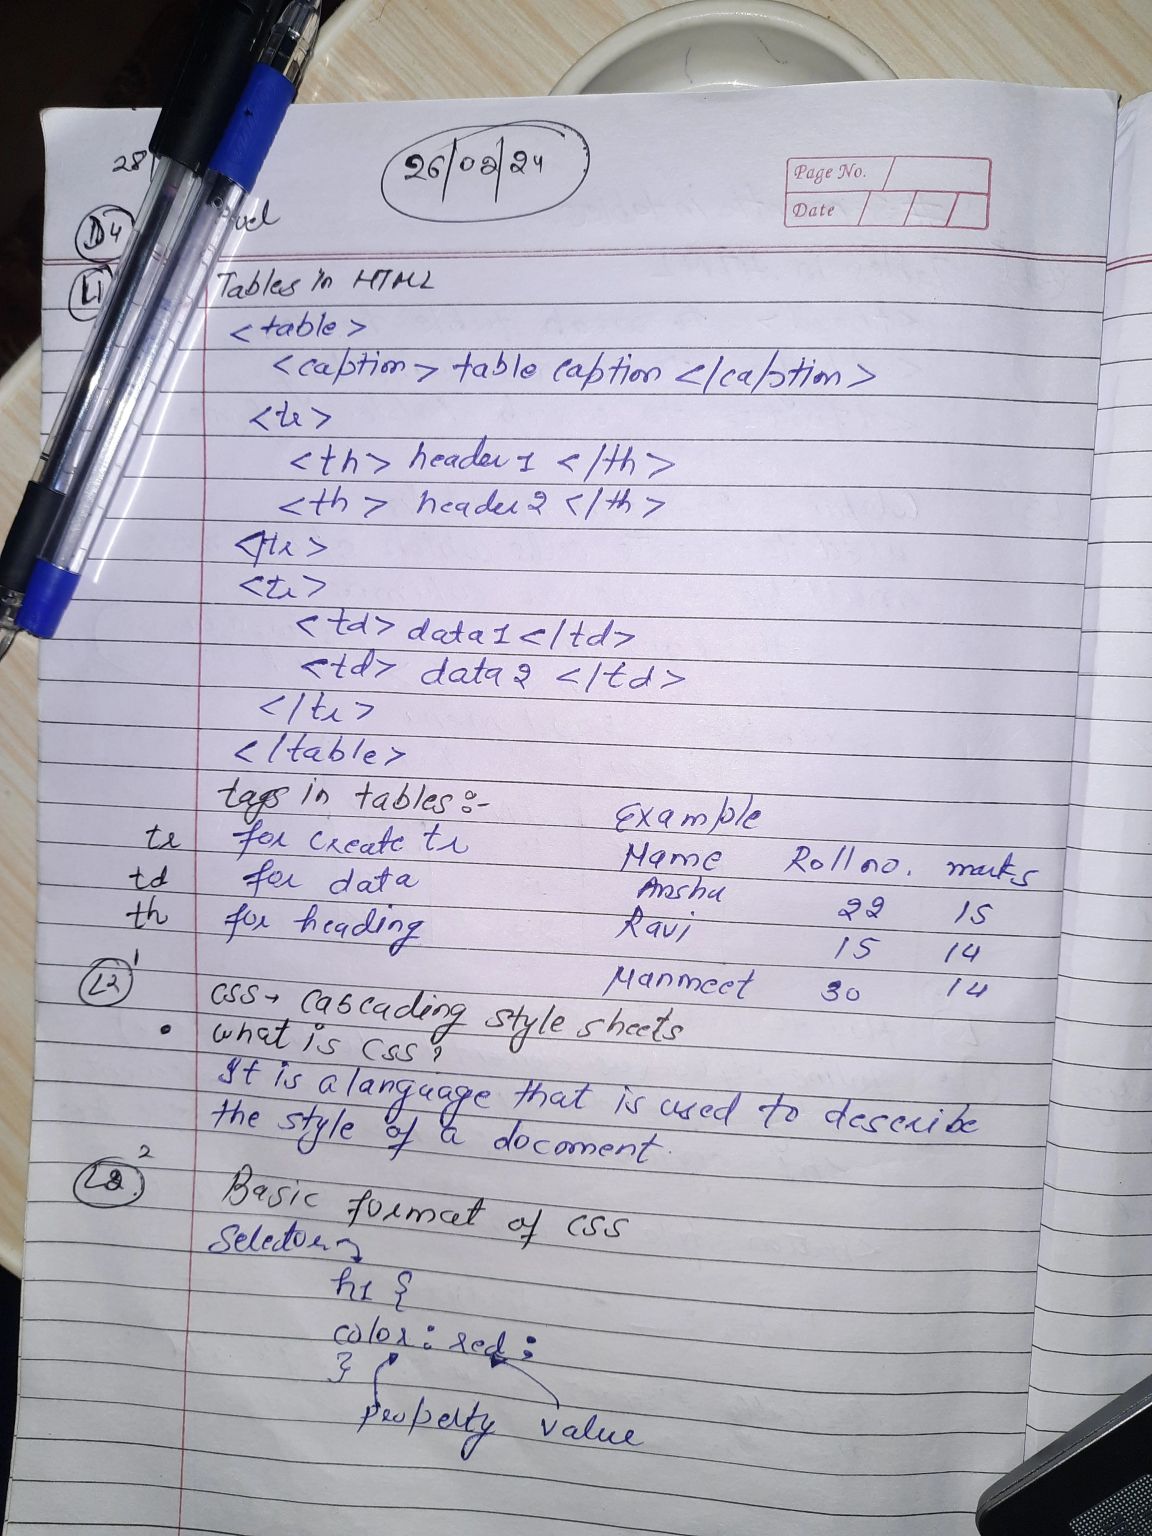 28
26/02/24
Page No.
Date
D4
L1
Tables in HTML
<table>
<caption> table caption </caption>
<tr>
<th> header 1 </th>
<th> header 2 </th>
</tr>
<tr>
<td> data 1 </td>
<td> data 2 </td>
</tr>
</table>
tags in tables :-
tr for create tr
td for data
th for heading
Example
Name Roll no. marks
Anshu 22 15
Ravi 15 14
Manmeet 30 14
L2 1
CSS → Cascading style sheets
• what is CSS?
It is a language that is used to describe
the style of a docoment.
L2 2
Basic format of CSS
Selector
h1 {
color : red ;
}
property value